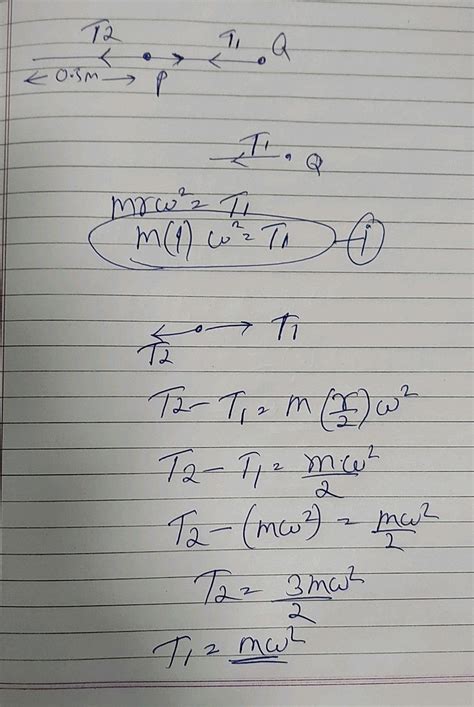 T2 T1 Q
0.5m P
T1 Q
mrω² = T1
m(1) ω² = T1 — i
T2 T1
T2 - T1 = m(r/2)ω²
T2 - T1 = mω²/2
T2 - (mω²) = mω²/2
T2 = 3mω²/2
T1 = mω²